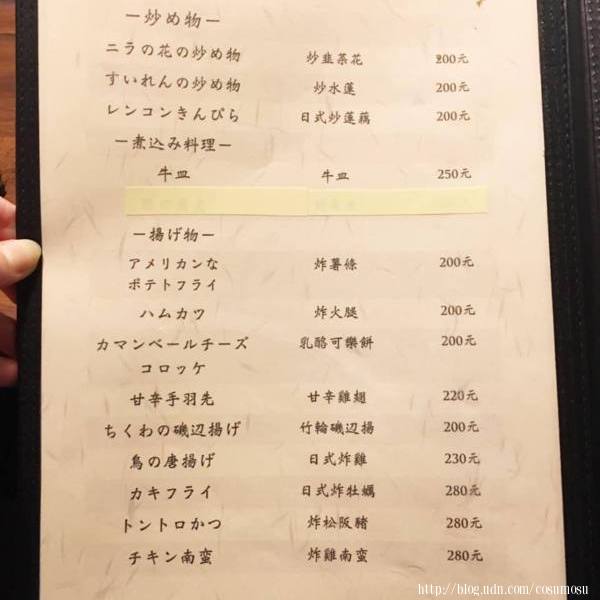 －炒め物－
ニラの花の炒め物 炒韭菜花 200元
すいれんの炒め物 炒水蓮 200元
レンコンきんぴら 日式炒蓮藕 200元
－煮込み料理－
牛皿 牛皿 250元
－揚げ物－
アメリカンな 炸薯條 200元
ポテトフライ
ハムカツ 炸火腿 200元
カマンベールチーズ 乳酪可樂餅 200元
コロッケ
甘辛手羽先 甘辛雞翅 220元
ちくわの磯辺揚げ 竹輪磯辺揚 200元
鳥の唐揚げ 日式炸雞 230元
カキフライ 日式炸牡蠣 280元
トントロかつ 炸松阪豬 280元
チキン南蛮 炸雞南蛮 280元
http://blog.udn.com/cosumosu